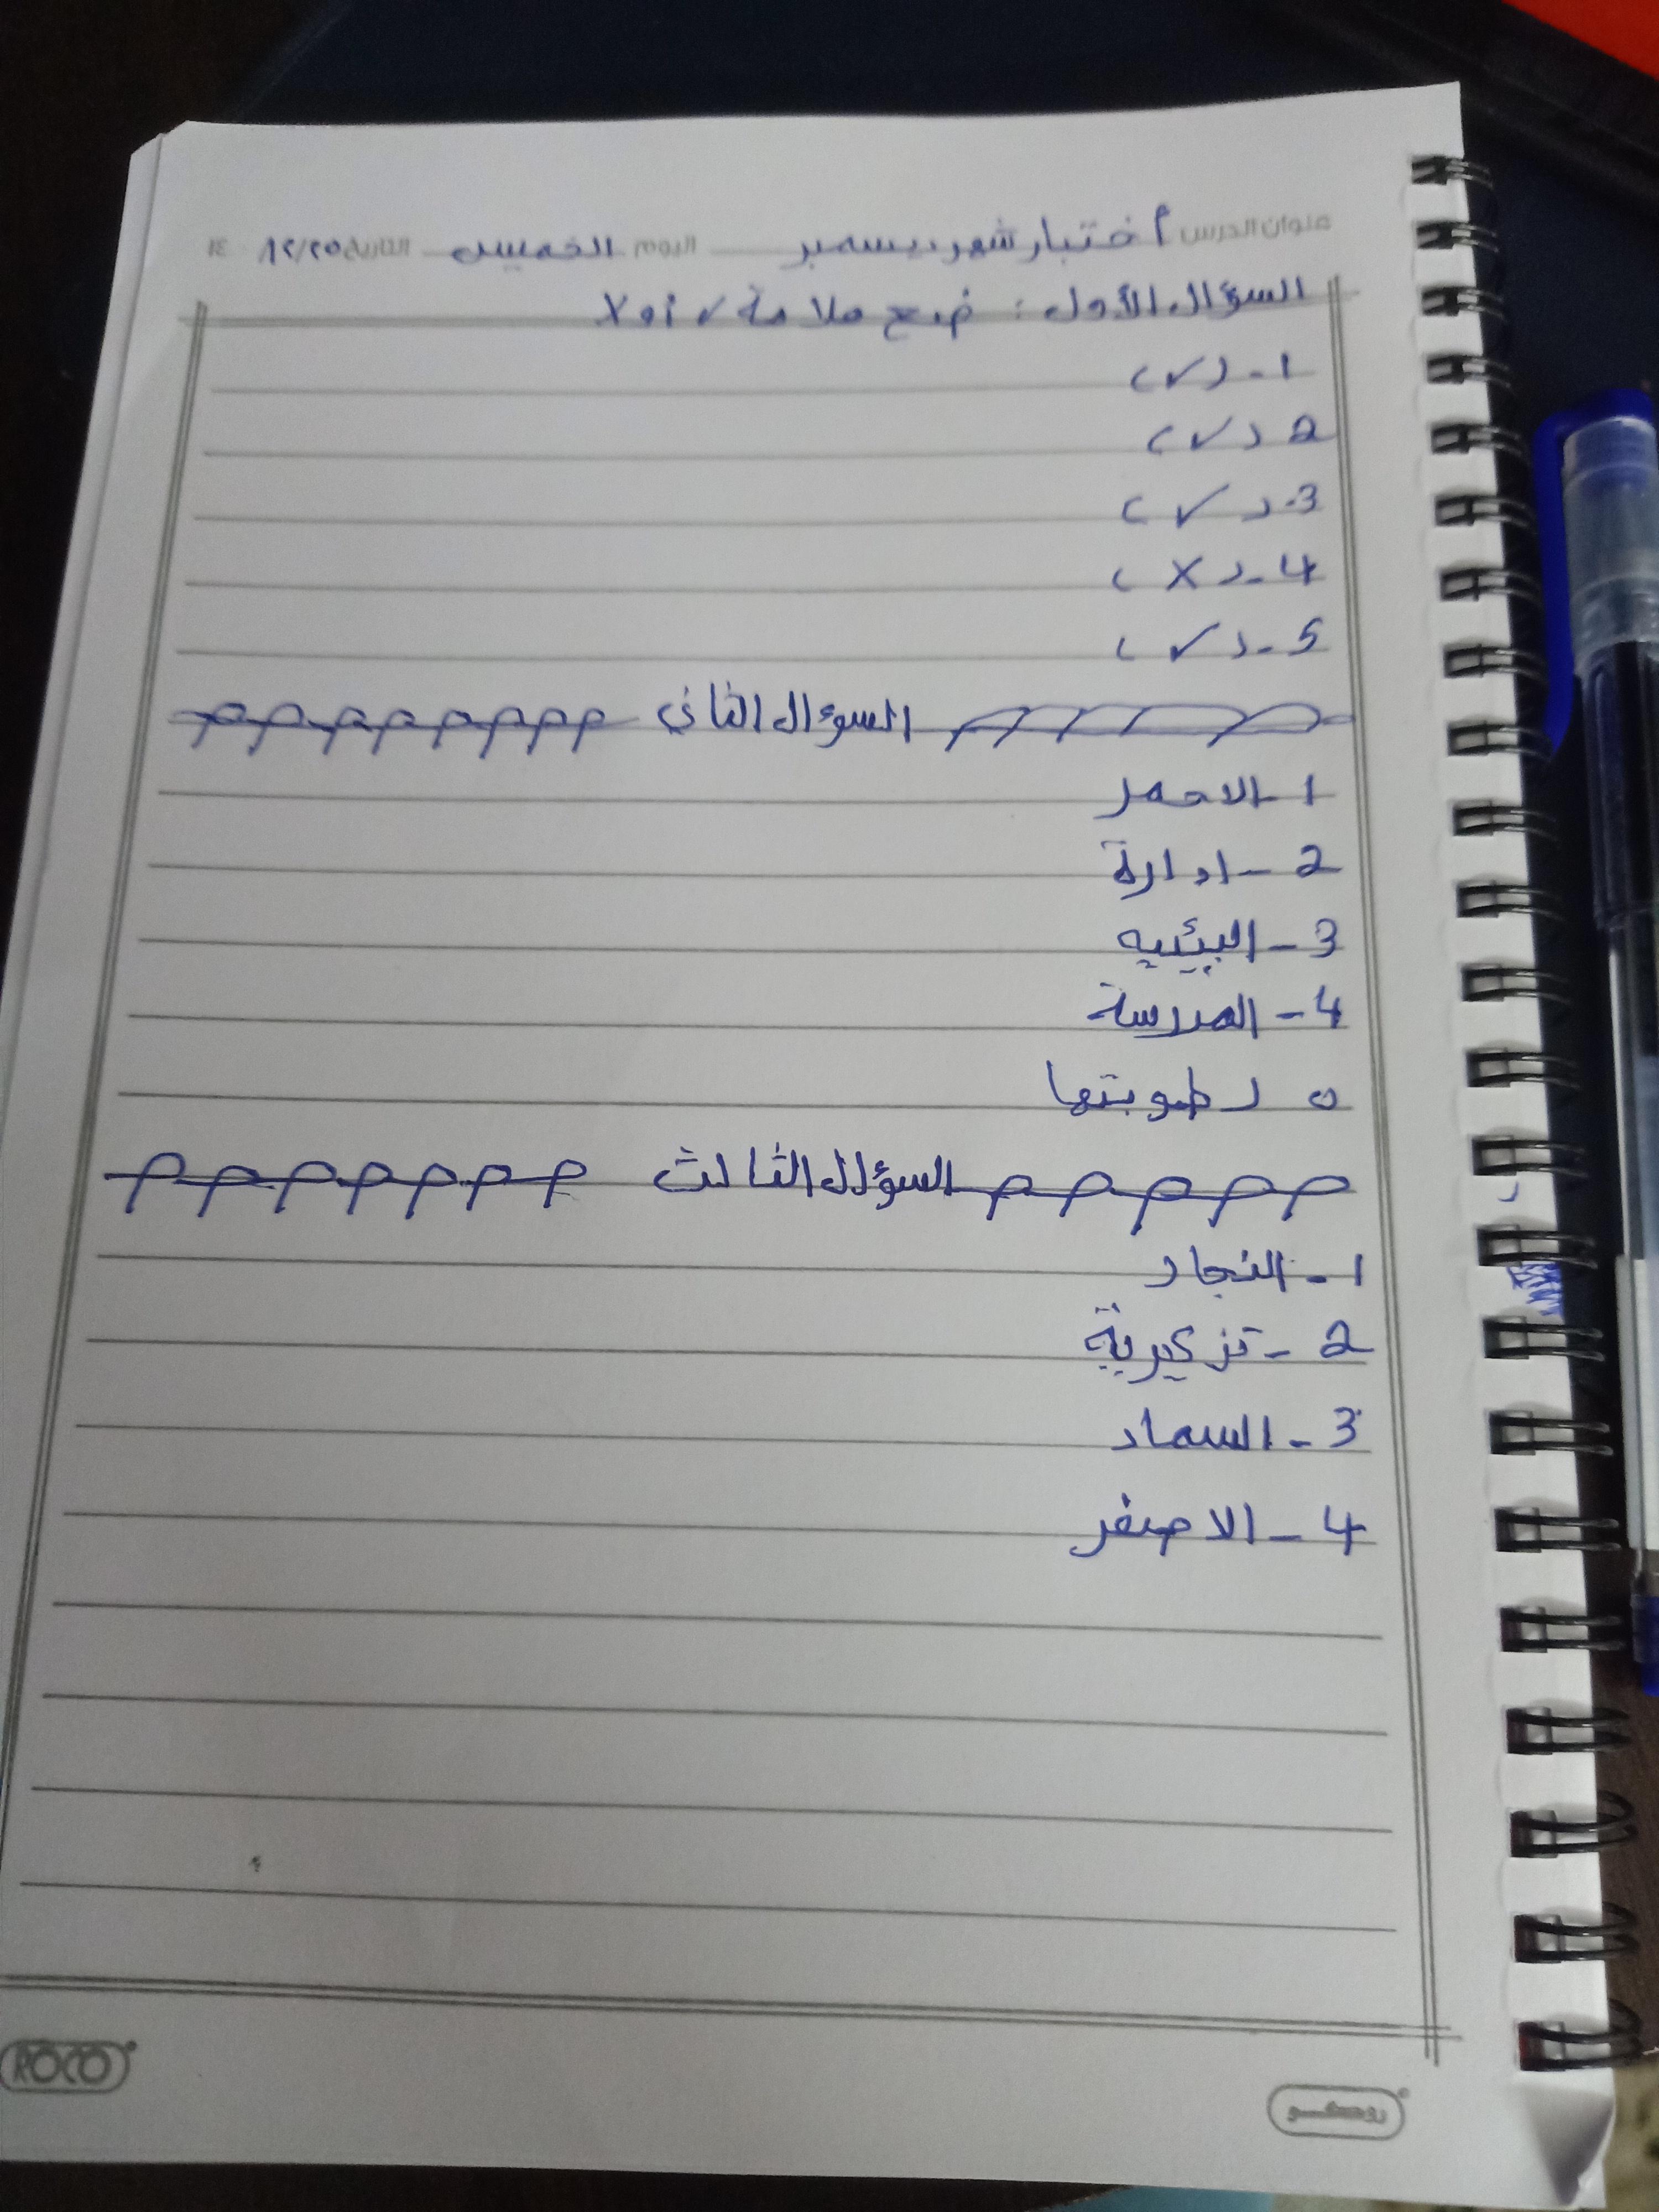 عنوان الدرس أختبار شهر ديسمبر اليوم الخميس التاريخ ١٢/٢٥ ١٤
السؤال الأول : ضع علامة ✓ أو X
1 - (✓)
2 (✓)
3 - (✓)
4 - (X)
5 - (✓)
السوءال الثاني
1 - الاحمر
2 - ادارة
3 - البيئيه
4 - المدرسة
٥ رطوبتها
السؤال الثالث
1 - النجار
2 - تزكيرية
3 - السماد
4 - الاصفر
ROCO
روكو